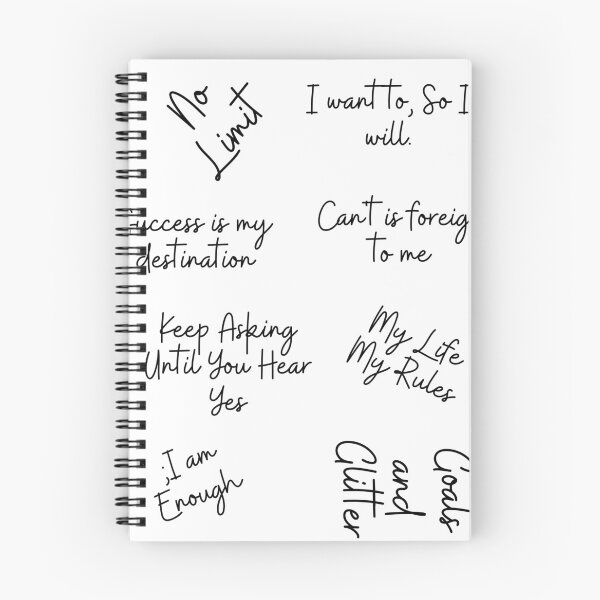 No
Limit
I want to, So I
will.
uccess is my
destination
Can't is foreig
to me
Keep Asking
Until You Hear
Yes
My Life
My Rules
;I am
Enough
Goals
and
Glitter